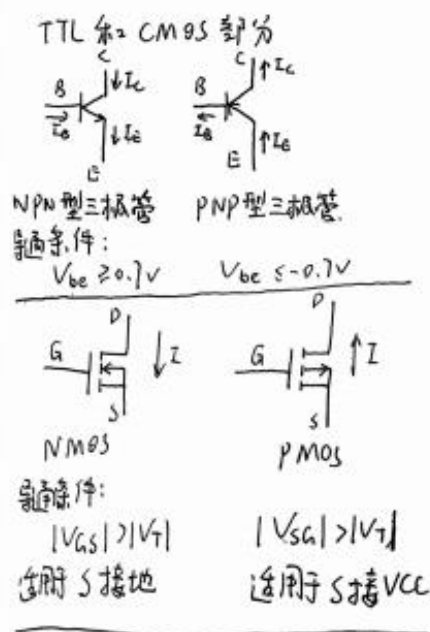 TTL 和 CMOS 部分
C C
B ↓Ic B ↑Ic
IB ↓IE IB ↑IE
E E
NPN型三极管 PNP型三极管
导通条件：
Vbe ≥0.7V Vbe ≤-0.7V
D D
G ↓I G ↑I
S S
NMOS PMOS
导通条件：
|VGS|>|VT| |VSG|>|VT|
适用于S接地 适用于S接VCC